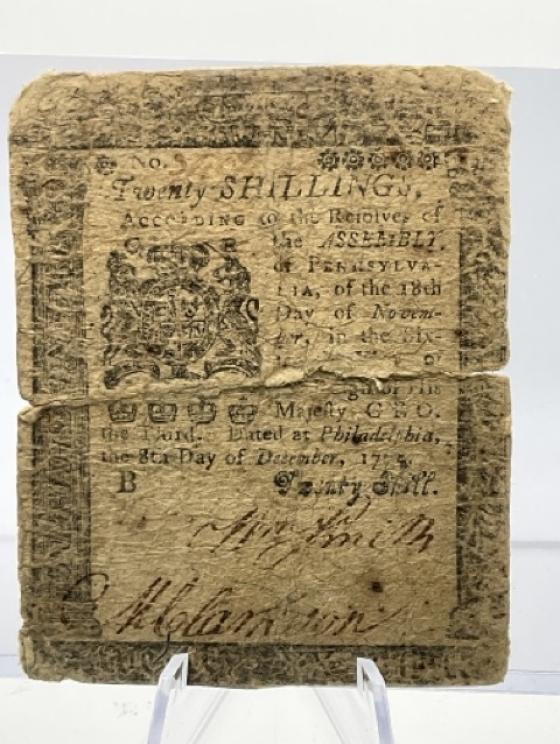 No.
Twenty SHILLINGS.
ACCORDING to the Resolves of
the ASSEMBLY
of PENNSYLVA-
NIA, of the 18th
Day of Novem-
ber, in the Six-
of
His
Majesty GEO.
the Third. Dated at Philadelphia,
the 8th Day of December, 1775.
B Twenty Shill.
Wm Smith